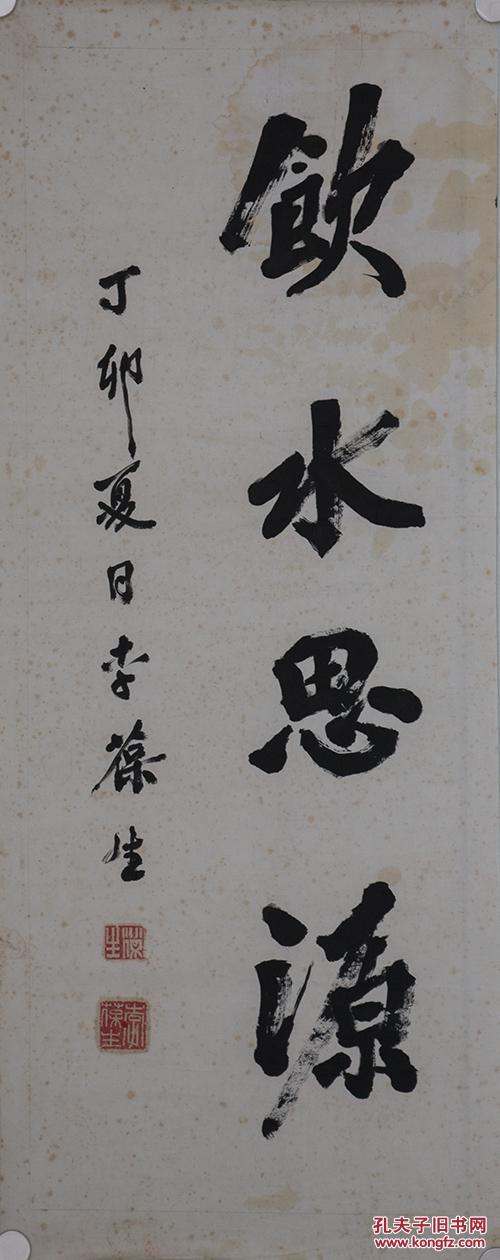 飲水思源
丁卯夏日李葆生
葆生
李葆生
孔夫子旧书网
www.kongfz.com